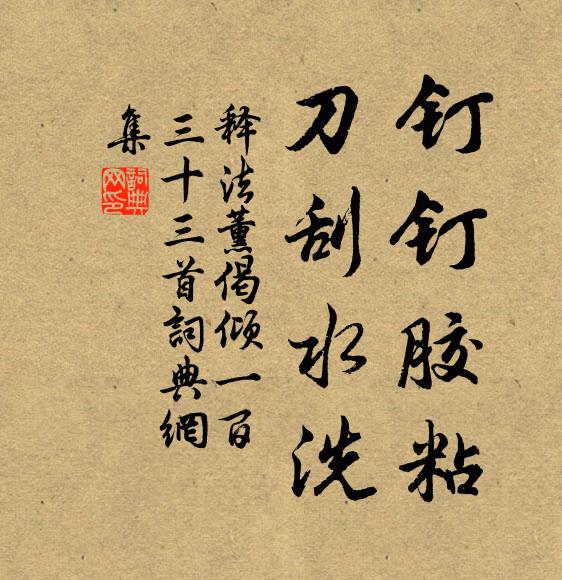 钉钉胶粘
刀刮水洗
释法薰偈倾一百
三十三首詞典網
集
詞典
网印